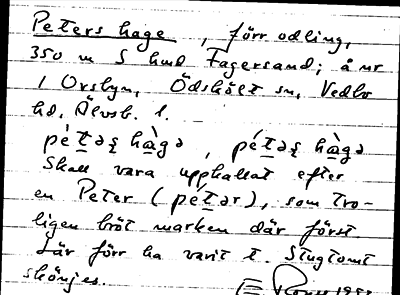 Peters hage, förr odling,
350 m S hmd Fagersand; å nr
1 Orsbyn, Ödskölt sn, Vedbo
hd, Älvsb. l.
pétəʂ hàgə, pétəʂ hàgə
Skall vara uppkallat efter
en Peter (pétər), som tro-
ligen bröt marken där först.
Där förr ha varit t. Stugtomt
skönjes.